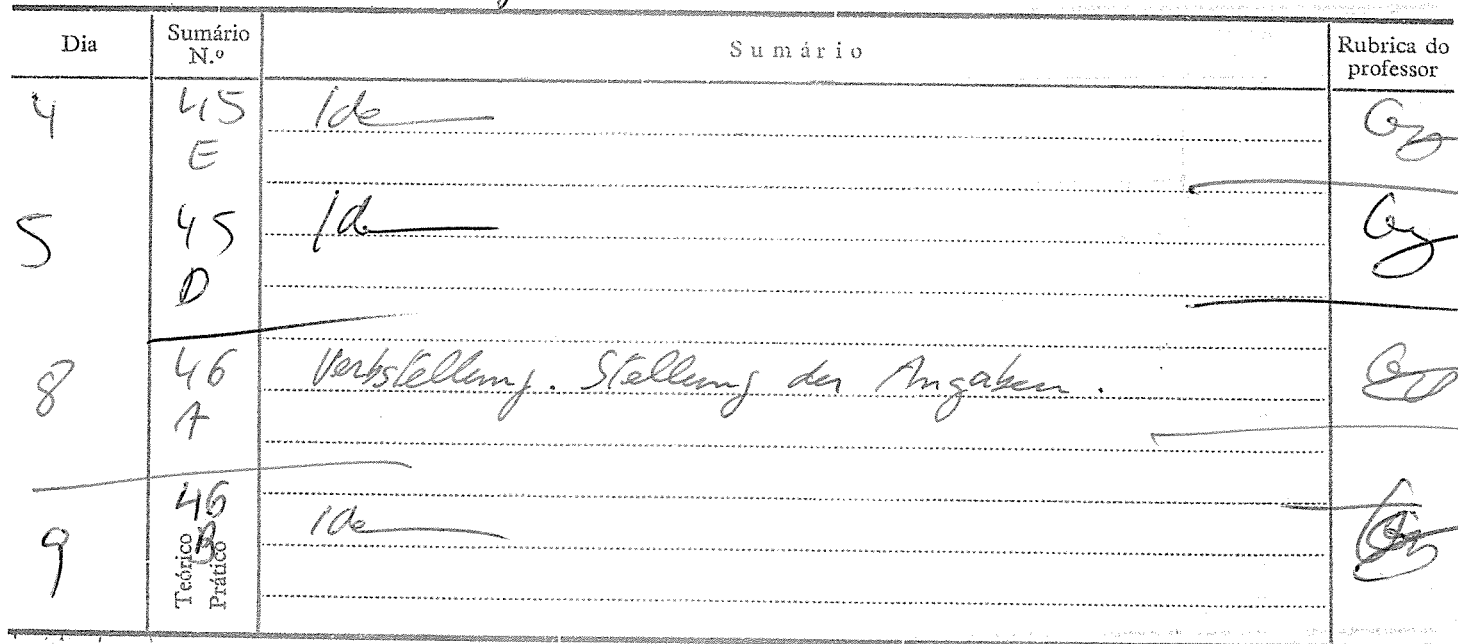 Dia Sumário N.º Sumário Rubrica do professor
4 45 Ide
E
5 45 Ide
D
8 46 Verbstellung. Stellung der Angaben.
A
9 46 Ide
B
Teórico
Prático